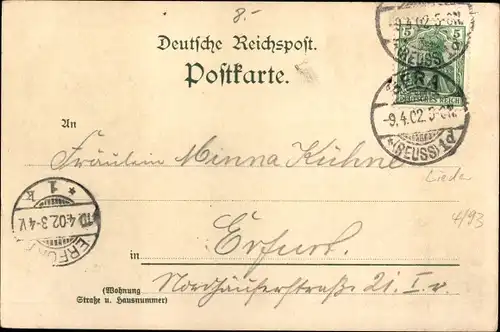 8.-
Deutsche Reichspost.
Postkarte.
5
DEUTSCHES REICH
-9.4.02. 5-6N.
(REUSS) d
GERA
-9.4.02. 5-6N.
*(REUSS) 1d
An
Fräulein Minna Kühne
Lieder
4/93
* 1 k
10.4.02. 3-4V.
ERFURT
in Erfurt.
(Wohnung Nordhäuserstraße 21. I. r.
Straße u. Hausnummer)